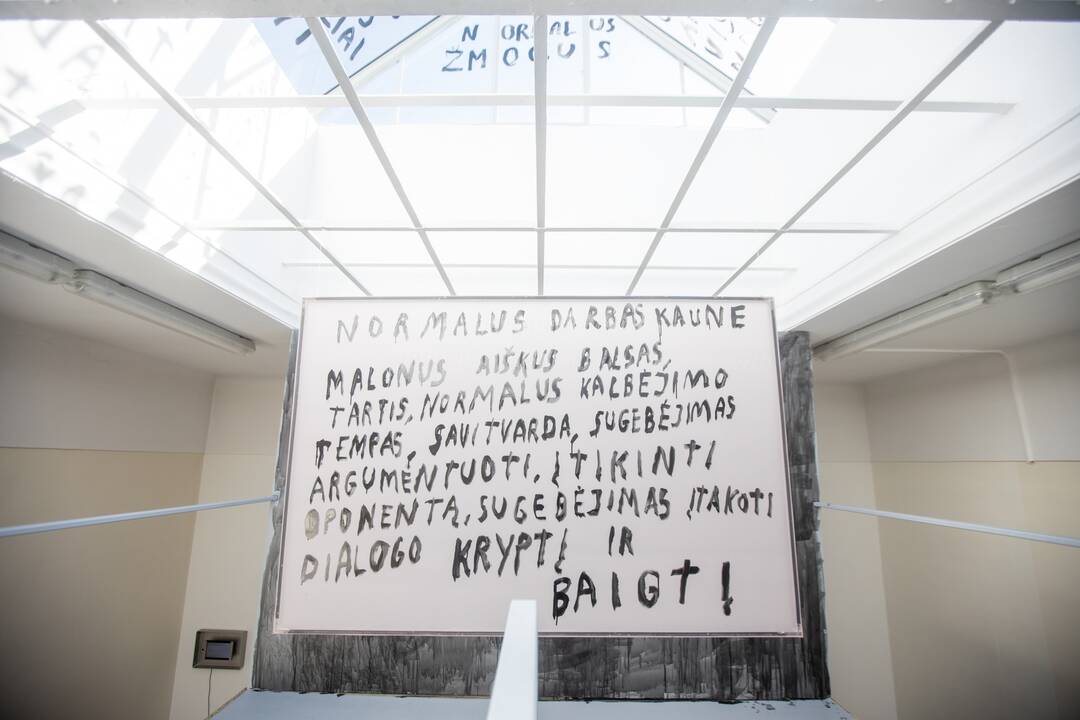 NORMALUS
ŽMOGUS
NORMALUS DARBAS KAUNE
MALONUS AIŠKUS BALSAS,
TARTIS, NORMALUS KALBĖJIMO
TEMPAS, SAVITVARDA, SUGEBĖJIMAS
ARGUMENTUOTI, ĮTIKINTI
OPONENTĄ, SUGEBĖJIMAS ĮTAKOTI
DIALOGO KRYPTĮ IR
BAIGTĮ